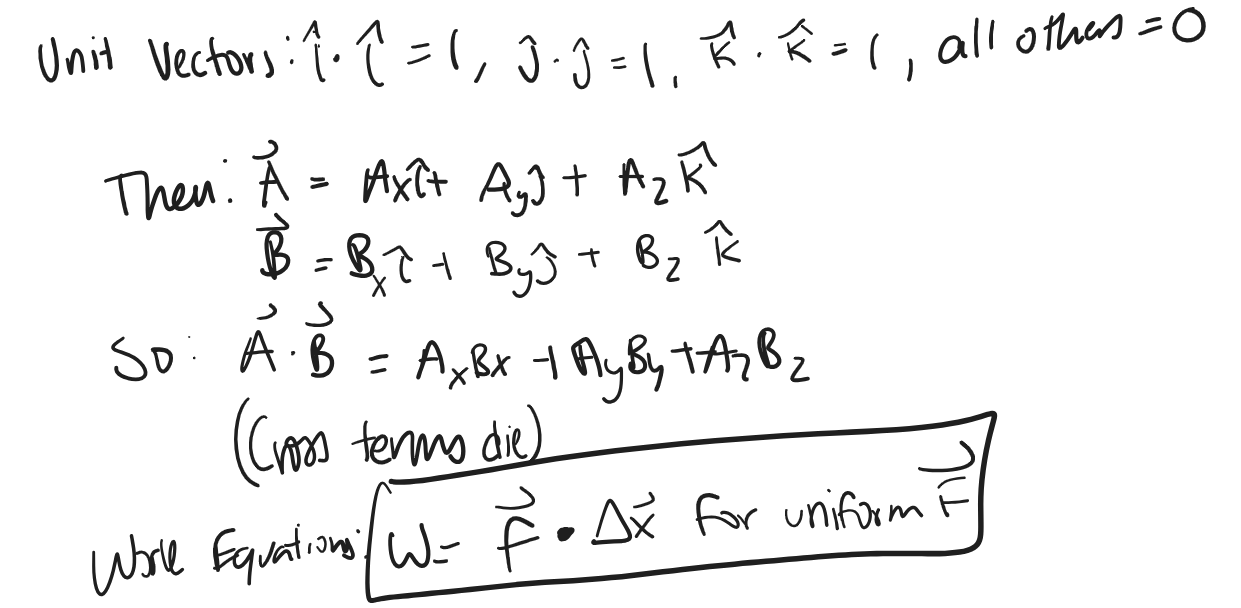 Unit Vectors: î · î = 1, ĵ · ĵ = 1, k̂ · k̂ = 1, all others = 0
Then: A⃗ = Axî + Ayĵ + Azk̂
B⃗ = Bxî + Byĵ + Bz k̂
So: A⃗ · B⃗ = AxBx + AyBy + AzBz
(Cross terms die)
Work Equations: W = F⃗ • Δx⃗ for uniform F⃗